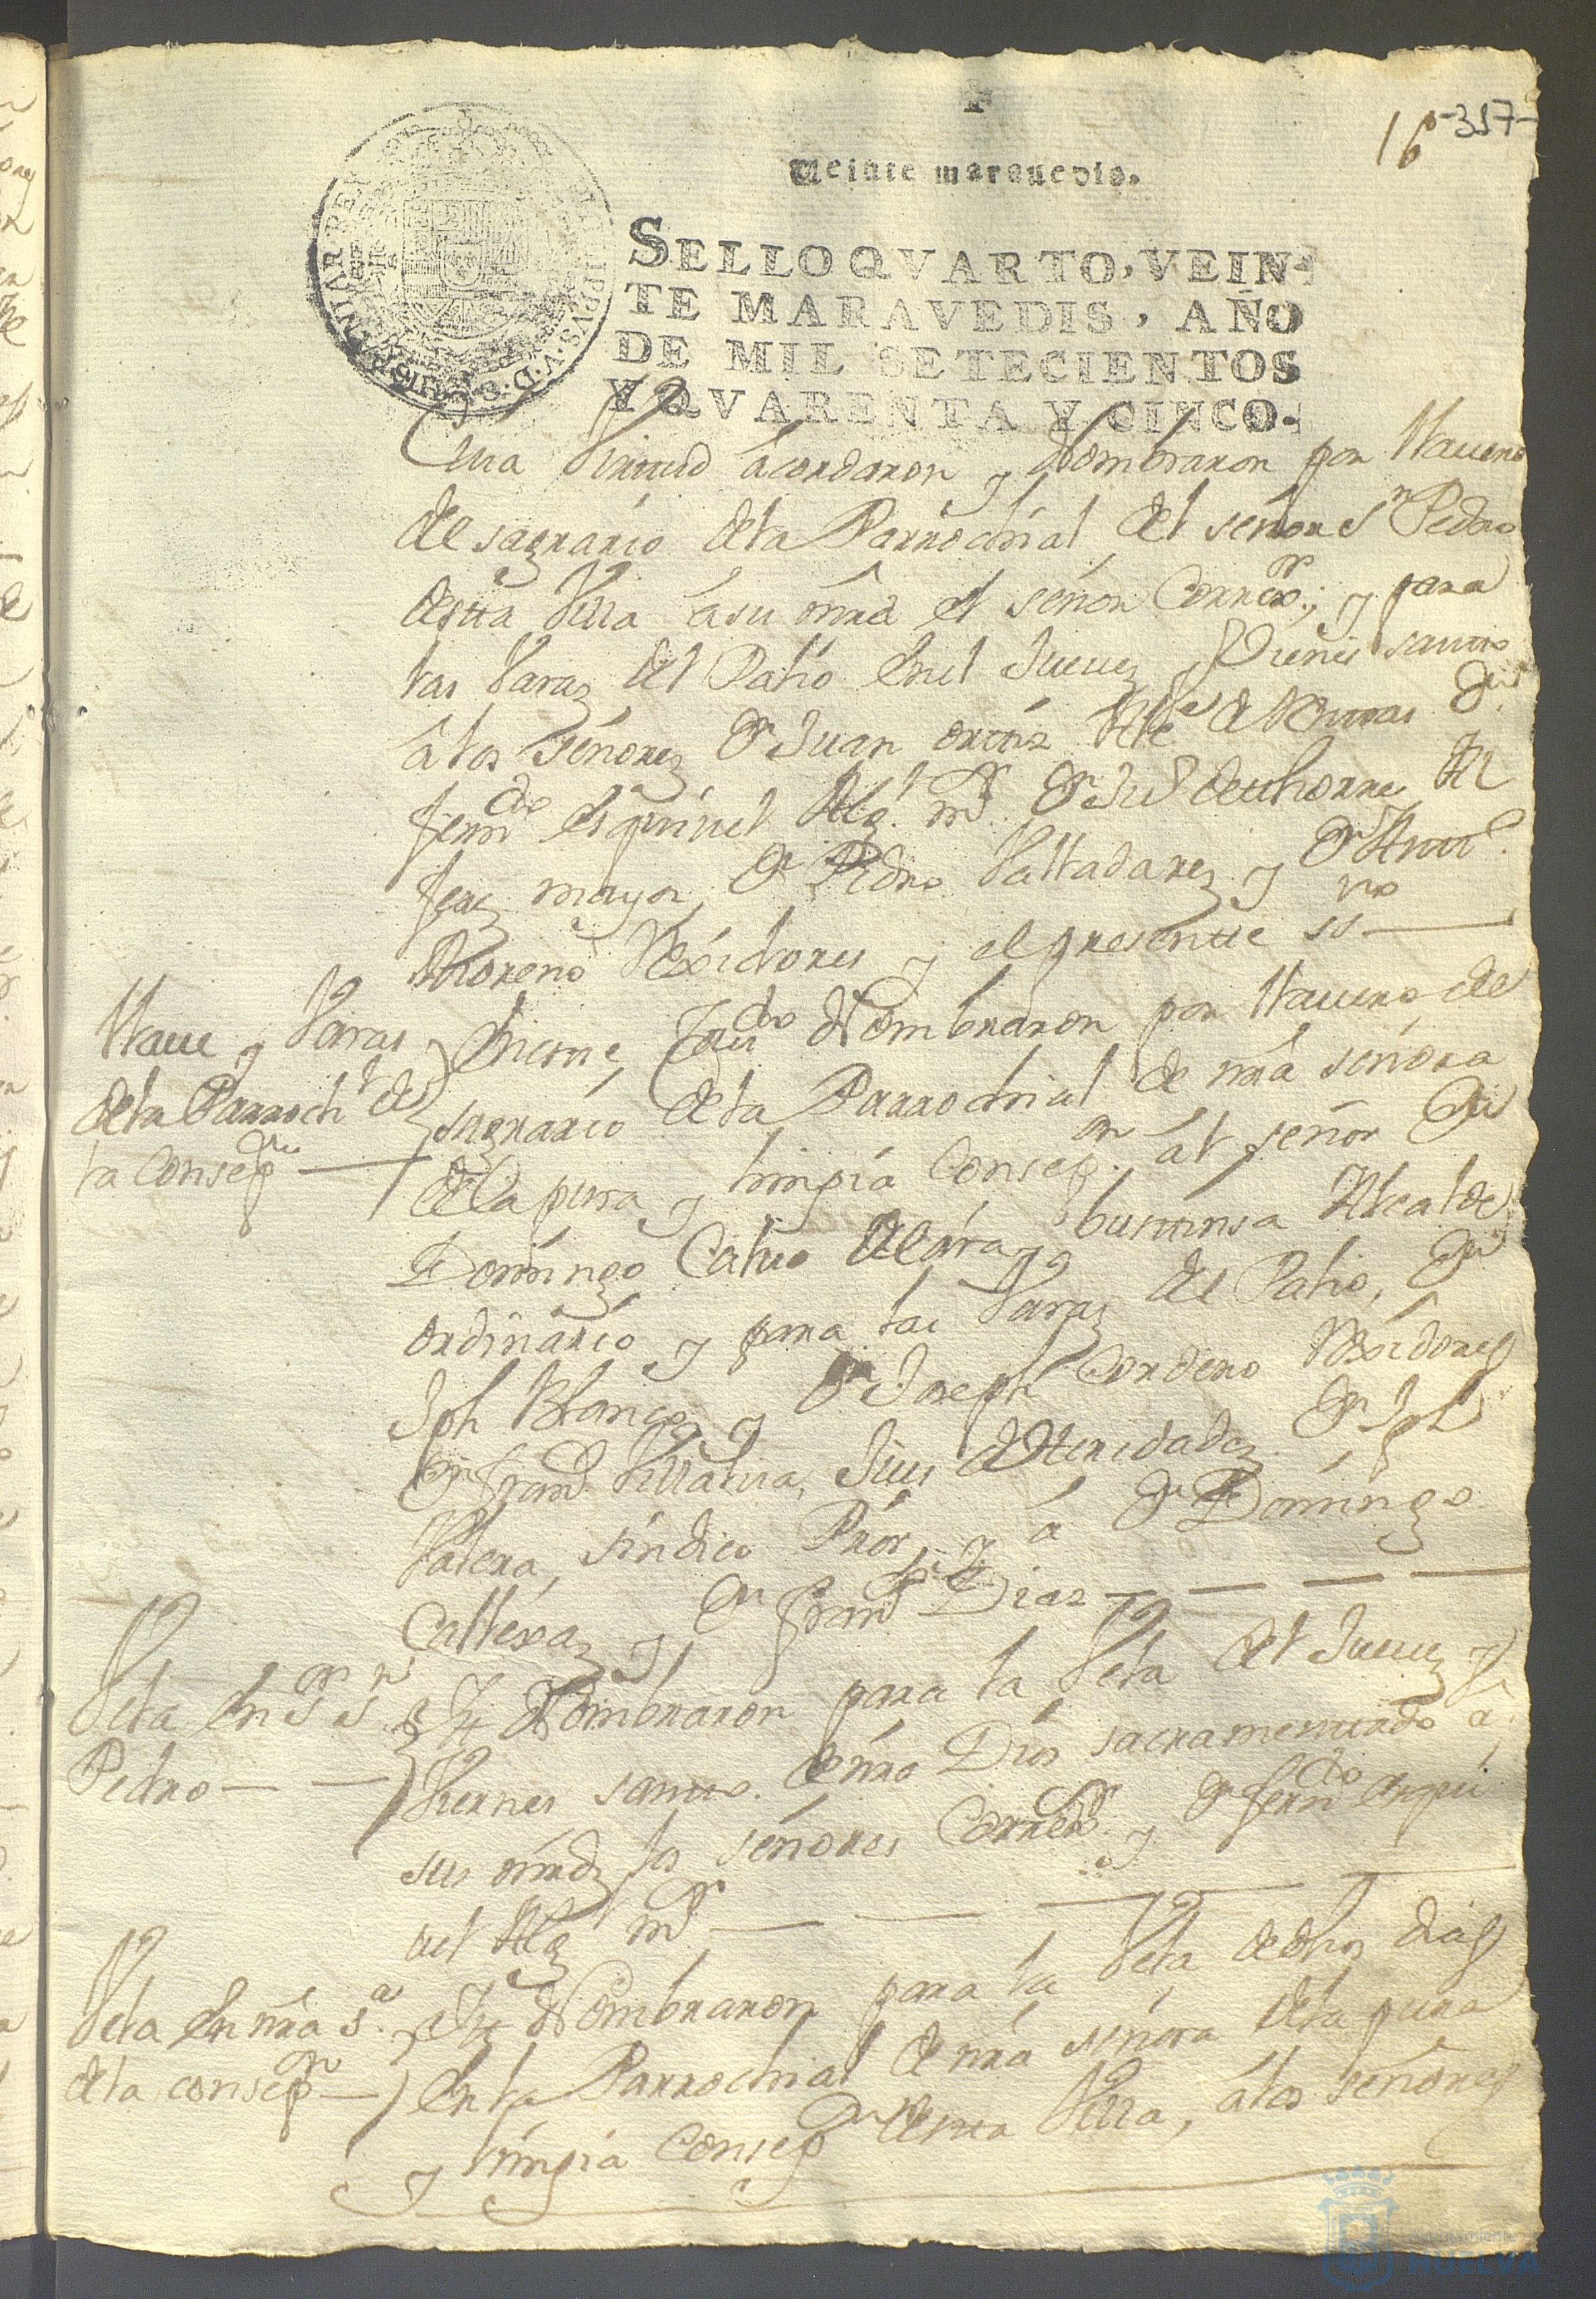 16 -317-
Veinte marauedis.
SELLO QVARTO, VEIN-
TE MARAVEDIS, AÑO
DE MIL SETECIENTOS
Y QVARENTA Y CINCO.
Cuia Virttud acordaron y Nombraron por Llauero
del sagrario de la Parrochial del señor Sn Pedro
destta Villa a su mrd el señor Correxor, y para
las Varas del Palio En el Jueues y Viernes santto
a los señores Dn Juan orttiz Dn
ferndo Esquiuel Alg. mr Dn Al
ferez mayor, Dn Pedro Valladares y Dn Antto
Moreno Rexidores y el presentte ssno
Llaue y Varas
de la Parrochl de
la Consepon
En estte Caudo Nombraron por Llauero del
sagrario de la Parrochial de nra señora
de la pura y limpia Consepon al señor Dn
Domingo Caluo de Lara y busttinsa Alcalde
ordinario y para las Varas del Palio, Dn
Jph Blanco y Dn Joseph Cordero Rexidores
Dn Franco Villalua, Jues Dn Jph
Valera, sindico Pror y a Dn Domingo
Callexas y Dn Franco Diaz
Vela En Sr Sn
Pedro
Ytt Nombraron para la Vela del Jueues y
Viernes santto. de nro Dios sacramentado a
sus mrds los señores Correxor y Dn ferndo Esqui
uel Alg mr
Vela En nra Sra
de la consepon
Ytt Nombraron para la Vela de dhos dias
En la Parrochial de nra señora de la pura
y limpia Consepon destta Villa, a los señores
Ayuntamiento
HUELVA